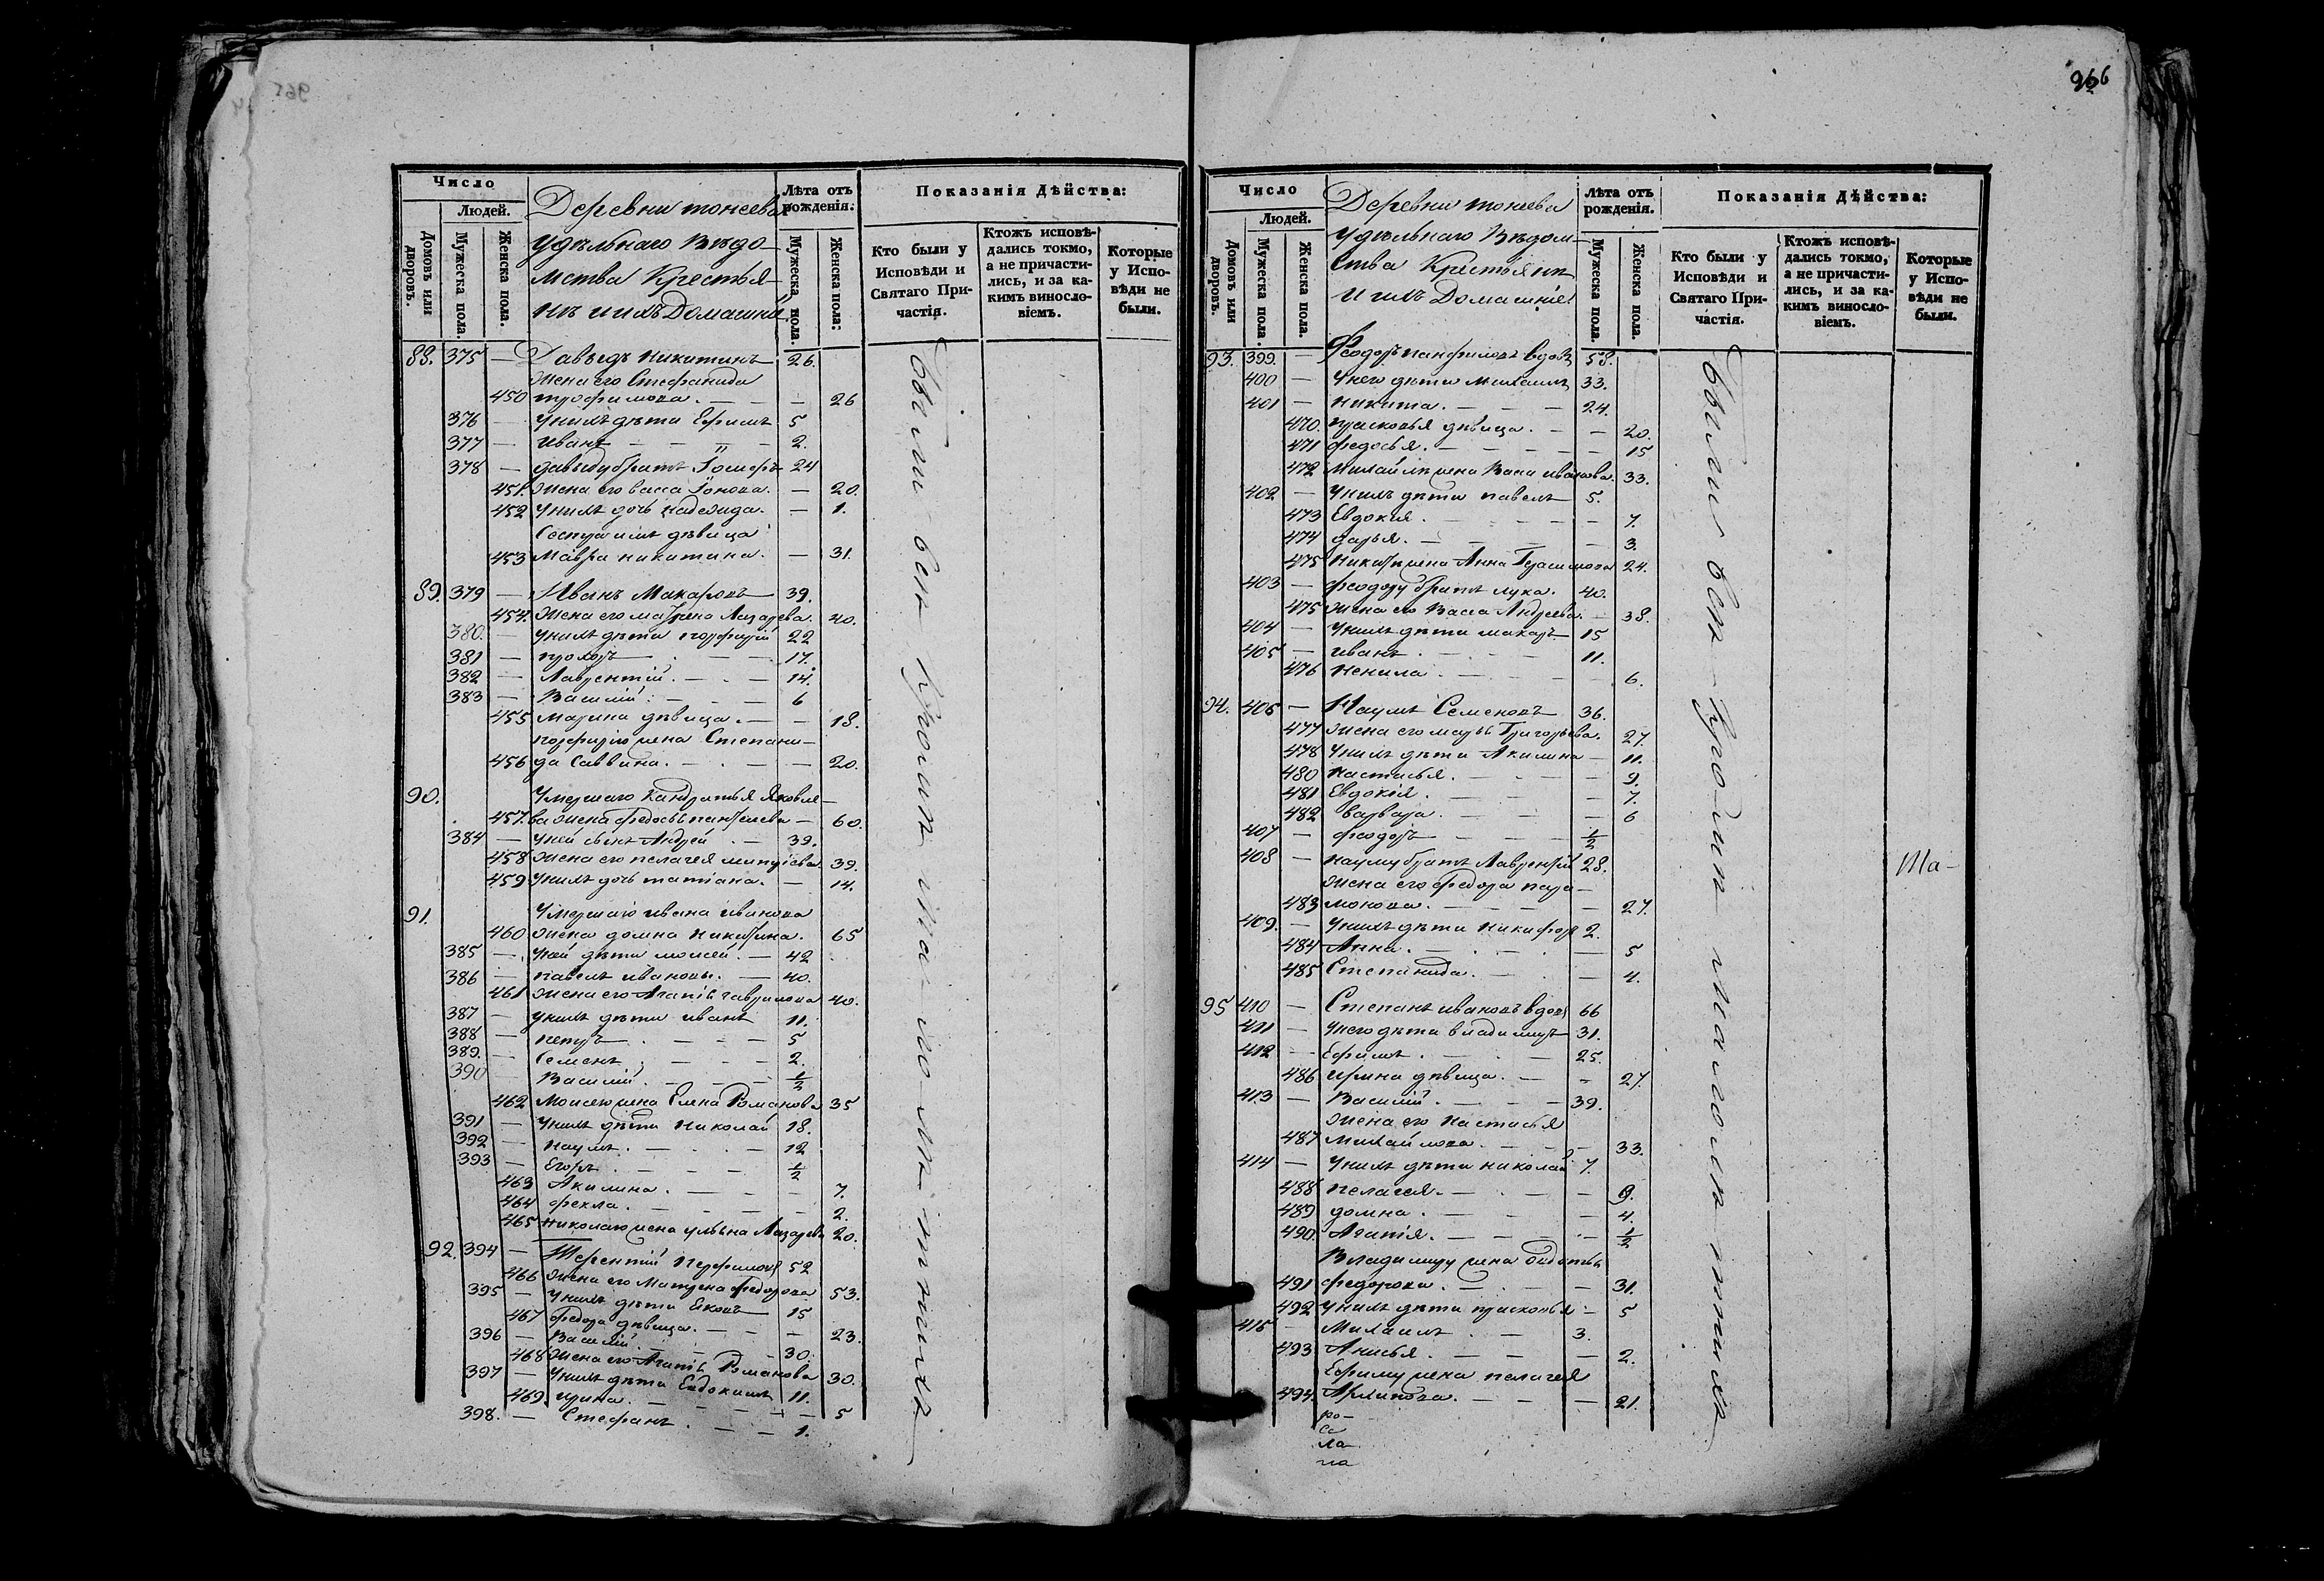 966
Число
Людей.
Домовъ или дворовъ.
Мужеска пола.
Женска пола.
Деревни тонеева
удѣльнаго Вѣдо-
мства Крестья-
нъ и ихъ Домашнiи
Лѣта отъ рожденія:
Мужеска пола.
Женска пола:
Показанія Дѣйства:
Кто были у Исповѣди и Святаго Причастія.
Ктожъ исповѣдались токмо, а не причастились, и за какимъ винословіемъ.
Которые у Исповѣди не были.
88. 375 — Давыдъ Никитинъ 26.
жена его Стефанида
450 трофимова. — — — 26
376 — У нихъ дѣти Ефимъ 5
377 — иванъ — — — 2.
378 — давыду братъ Iосифъ 24
451. жена его васса Iонова. — 20.
452 У нихъ дочь надежда. — 1.
Сестра имъ дѣвица
453 Мавра никитина. — 31.
89. 379 — Иванъ Макаровъ 39.
454. жена его матрена Лазарева. 40.
380. — У нихъ дѣти порфирiй 22
381 — прохоръ — — — 17.
382 — Лаврентiй. — — 14.
383 — Василiй. — — 6
455 марина дѣвица. — — 18.
порфирiю жена Степани-
456 да Саввина. — — — 20.
90. Умершаго Кандратья Яковле-
457. ва жена федосья пантелева — 60.
384 — У ней сынъ Андрей — 39.
458 жена его пелагея 39.
459 У нихъ дочь татiана. — 14.
91. Умершаго ивана иванова
460 жена домна никитина. 65
385 — У ней дѣти моисей. — 42
386 — павелъ ивановы. — 40.
461 жена его Агапiя гаврилова 40.
387 — У нихъ дѣти иванъ 11.
388 — петръ — — 5
389. — Семенъ. — — 2.
390 — Василiй. — — 1/2
462 Моисею жена Елена Романова 35
391 — У нихъ дѣти Николай 18.
392 — Наумъ. — — 12
393 — Егоръ. — — 1/2
463 Акилина. — — — 7.
464 фекла. — — — 2.
465 Николаю жена ульяна Лазарева 20.
92. 394 — Терентiй 52
466 жена его Матрена федорова 53.
395 — У нихъ дѣти Яковъ 15
467 федора дѣвица. — — 23.
396 — Василiй. — — 30.
468 жена его Агапiя Романова 30.
397 — У нихъ дѣти Евдокимъ 11.
469. ирина. — — — 5
398. — Стефанъ. — — 1.
Были вси кромѣ малолѣтнихъ
Число
Людей.
Домовъ или дворовъ.
Мужеска пола.
Женска пола.
Деревни тонеева
удѣльнаго Вѣдом-
ства Крестьянъ
и ихъ Домашнiя
Лѣта отъ рожденія.
Мужеска пола.
Женска пола.
Показанія Дѣйства:
Кто были у Исповѣди и Святаго Причастія.
Ктожъ исповѣдались токмо, а не причастились, и за какимъ винословіемъ.
Которые у Исповѣди не были.
93. 399. — Феодоръ панфиловъ вдовъ 58.
400 — У него дѣти михаилъ 33.
401 — Никита. — — — 24.
470. прасковья дѣвица. — — 20.
471 федосья. — — — 15
472 михаилу жена Васа иванова. 33.
402 — У нихъ дѣти павелъ 5.
473 Евдокiя. — — — 7.
474 дарья. — — — 3.
475 Никитѣ жена Анна Герасимова 24.
403 — феодору братъ лука. 40.
475 жена его Васса Андреева. — 38.
404 — У нихъ дѣти макаръ 15
405 — иванъ. — — 11.
476 Ненила. — — — 6.
94. 406 — Наумъ Семеновъ 36.
477 жена его марья Григорьева. 27.
478 У нихъ дѣти Акилина — 11.
480 Настасья. — — — 9.
481 Евдокiя. — — — 7.
482 варвара. — — — 6
407 — феодоръ — — 1/2
408 — науму братъ Лаврентiй 28.
жена его федора пара-
483 монова. — — — 27.
409. — У нихъ дѣти Никифоръ 2.
484 Анна. — — — 5
485 Степанида. — — 4.
95 410 — Степанъ ивановъ вдовъ 66
411 — У него дѣти владимиръ 31.
412 — Ефимъ. — — 25.
486 ирина дѣвица. — — 27.
413 — Василiй. — — 39.
жена его Настасья
487 михайлова. — — — 33.
414 — У нихъ дѣти николай 7.
488 пелагея. — — — 9.
489 домна. — — — 4.
490. Агапiя. — — — 1/2
Владимиру жена
491 федорова. — — — 31.
492 У нихъ дѣти прасковья — 5
415 — Михаилъ. — 3.
493 Анисья. — — — 2.
Ефиму жена пелагея
494. — — — 21.
ро-
са
ла-
на
Были вси кромѣ малолѣтнихъ
Ма-